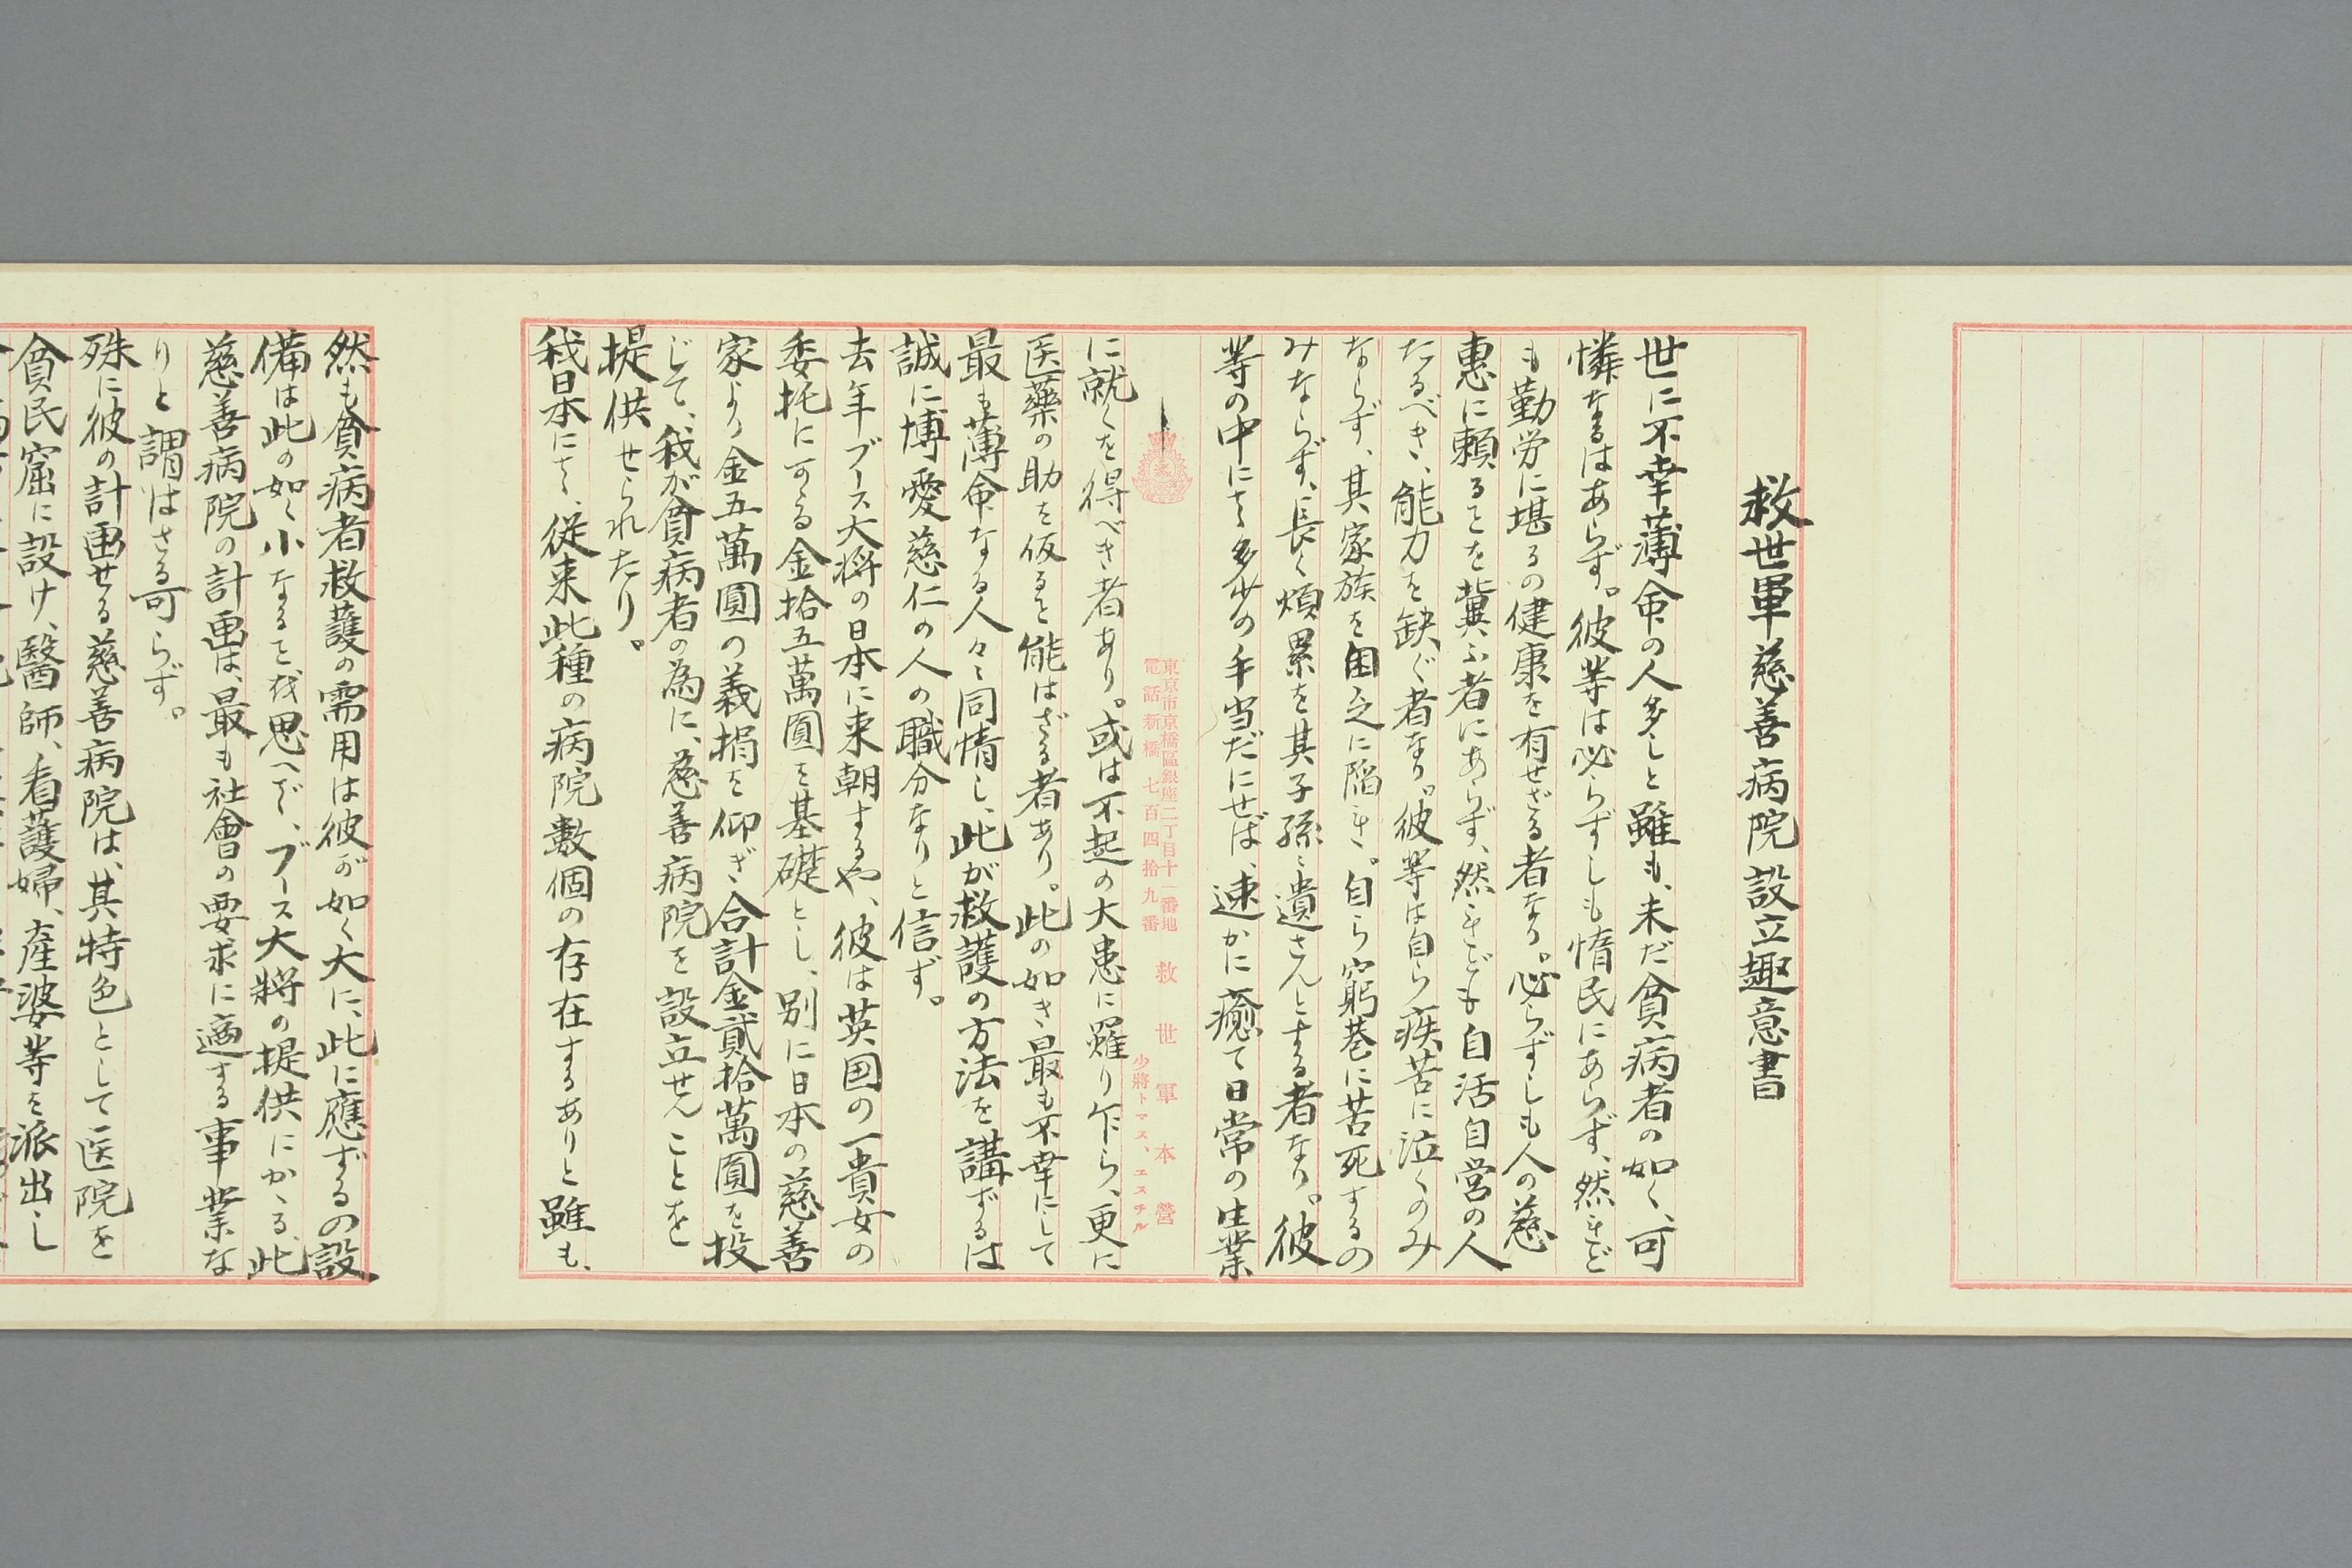 救世軍慈善病院設立趣意書
世に不幸薄命の人多しと雖も、未だ貧病者の如く、可
憐なるはあらず。彼等は必らずしも惰民にあらず、然れど
も勤労に堪るの健康を有せざる者なり。必らずしも人の慈
惠に頼ることを冀ふ者にあらず、然れども自活自営の人
たるべき、能力を缺ぐ者なり。彼等は自ら疾苦に泣くのみ
ならず、其家族を困乏に陥れ。自ら窮巷に苦死するの
みならず、長く煩累を其子孫に遺さんとする者なり。彼
等の中にて多少の手当だにせば、速かに癒て日常の生業
一
東京市京橋區銀座二丁目十一番地
電話新橋七百四拾九番
救世軍本營
少將トマス、エスチル
に就くを得べき者あり。或は不起の大患に羅り乍ら、更に
医藥の助を仮ると能はざる者あり。此の如き最も不幸にして
最も薄命なる人々に同情し、此が救護の方法を講ずるは
誠に博愛慈仁の人の職分なりと信ず。
去年ブース大将の日本に来朝するや、彼は英国の一貴女の
委托に可る金拾五萬圓を基礎とし、別に日本の慈善
家より金五萬圓の義捐を仰ぎ合計金貳拾萬圓を投
じて、我が貧病者の為に、慈善病院を設立せんことを
提供せられたり。
我日本にて、従来此種の病院數個の存在するありと雖も、
然も貧病者救護の需用は彼が如く大に、此に應ずるの設
備は此の如く小なるとを思へば、ブース大將の提供にかゝる、此
慈善病院の計画は、最も社會の要求に適する事業な
りと謂はざる可らず。
殊に彼の計画せる慈善病院は、其特色として医院を
貧民窟に設け、醫師、看護婦、産婆等を派出し